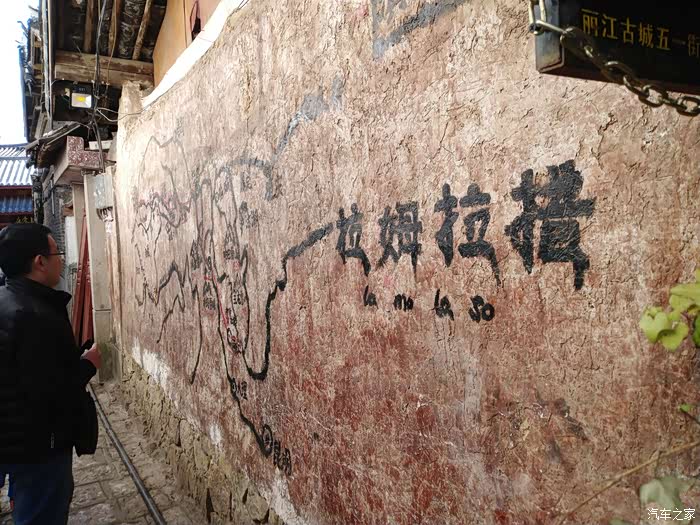 丽江古城五一街
拉姆拉措
la mu la so
汽车之家